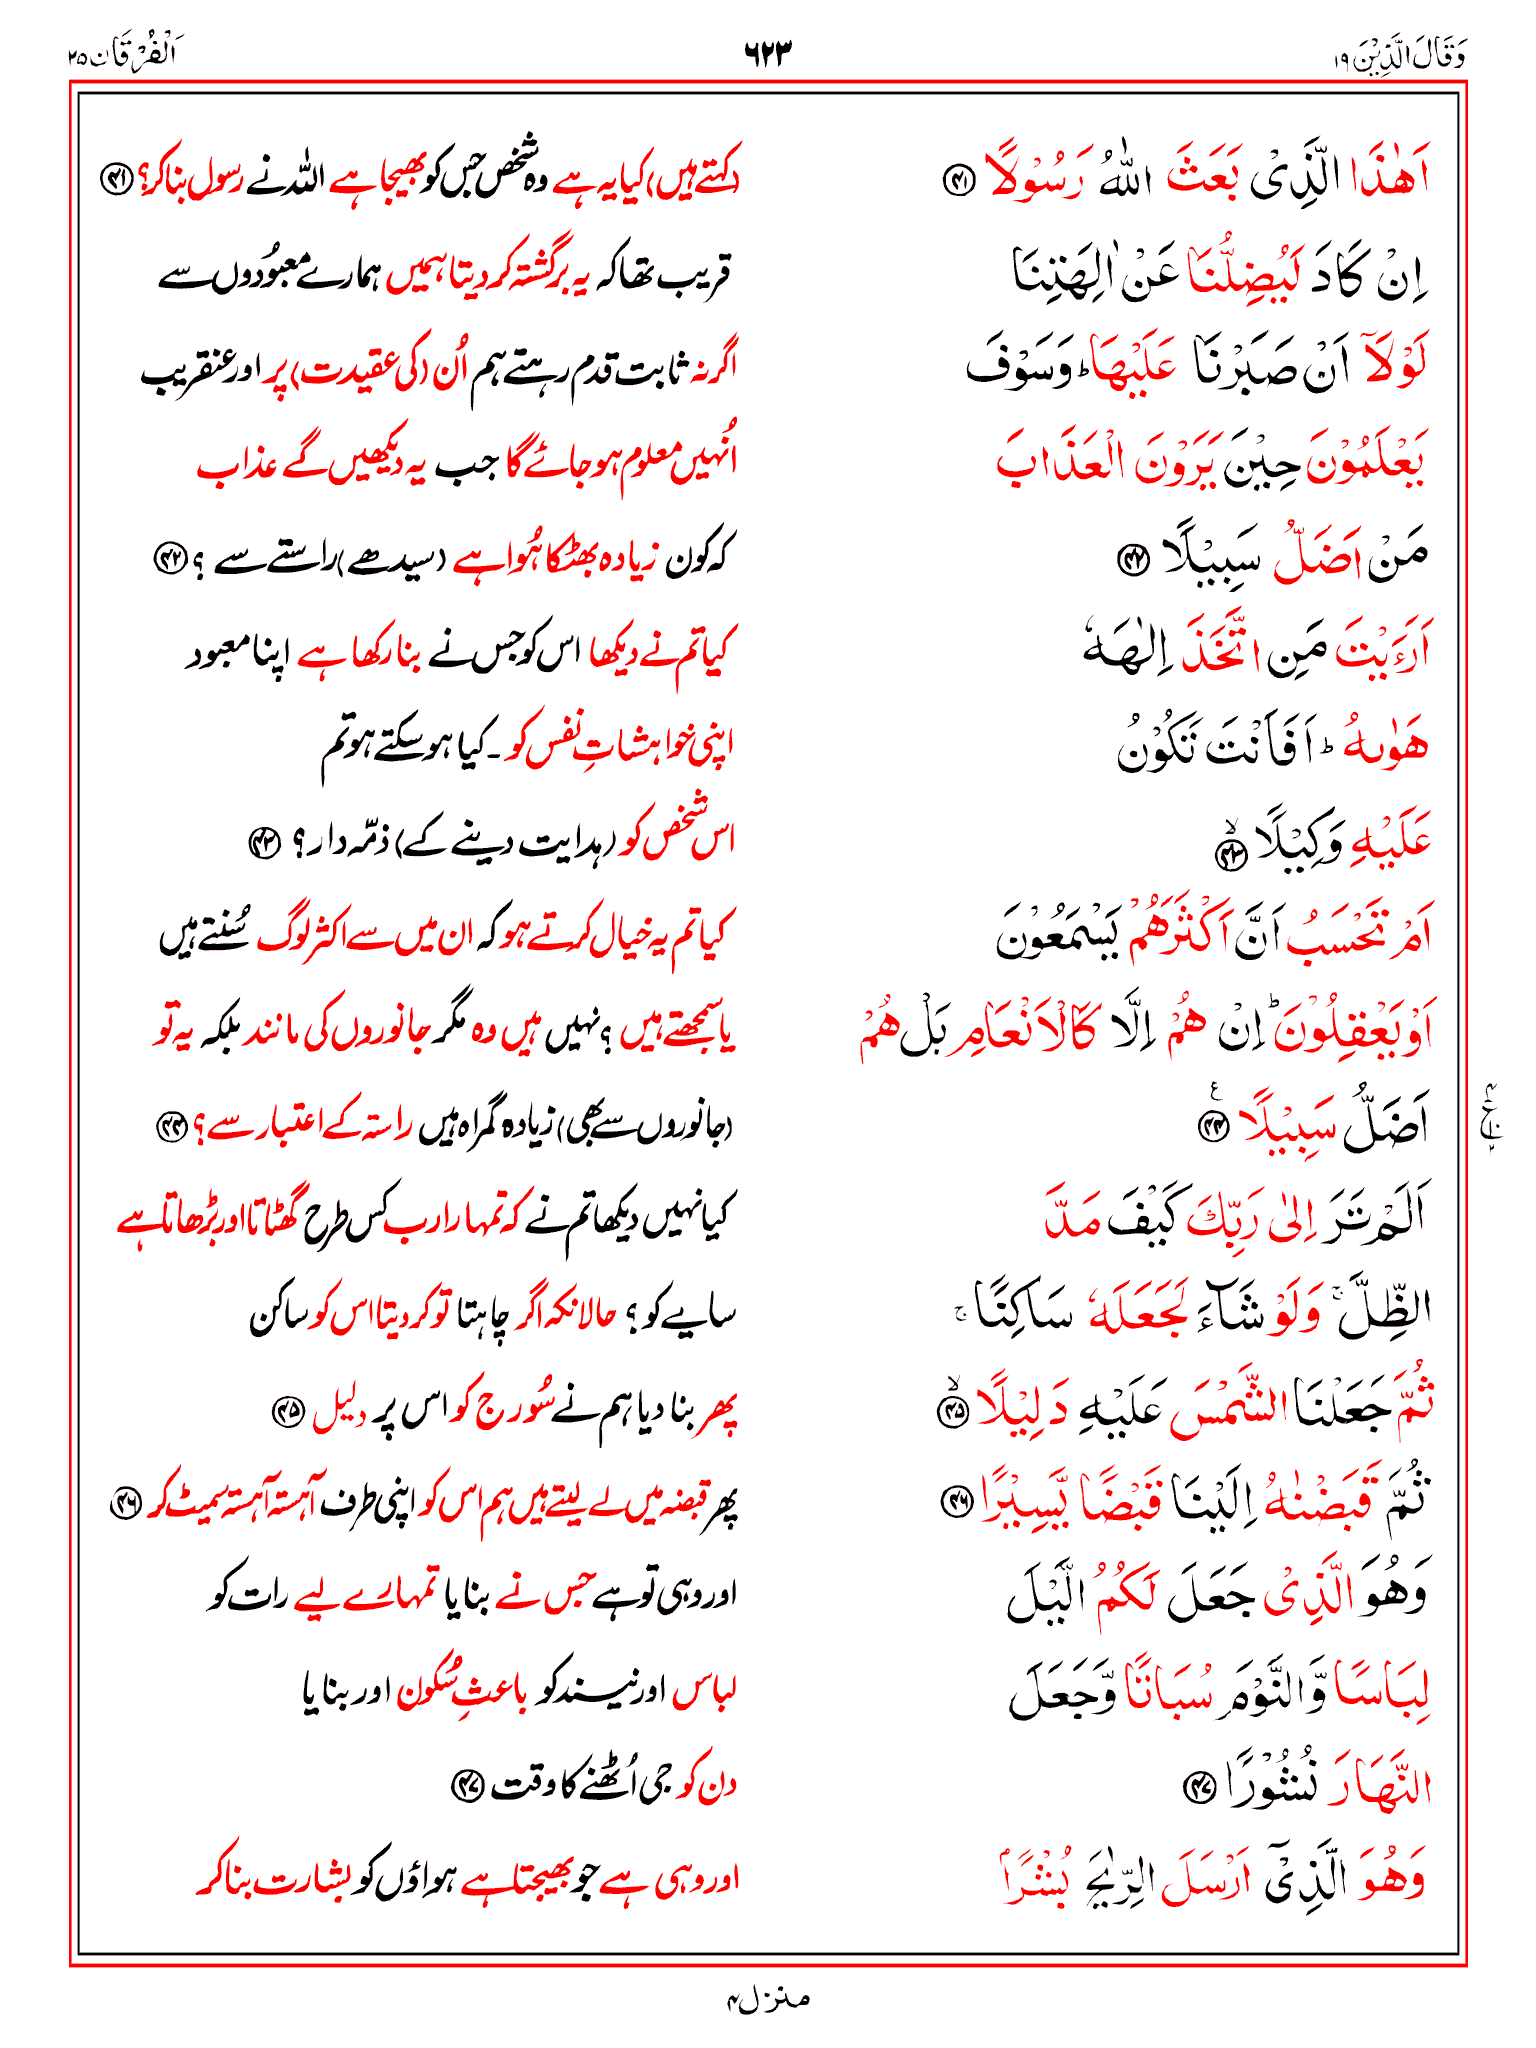 وَقَالَ الَّذِيْنَ ۱۹
۶۲۳
اَلْفُرْقَان ۲۵
اَهٰذَا الَّذِىْ بَعَثَ اللّٰهُ رَسُوْلًا ۴۱
(کہتے ہیں) کیا یہ ہے وہ شخص جس کو بھیجا ہے اللہ نے رسول بنا کر؟ ۴۱
اِنْ كَادَ لَيُضِلُّنَا عَنْ اٰلِهَتِنَا
قریب تھا کہ یہ برگشتہ کر دیتا ہمیں ہمارے معبُودوں سے
لَوْلَاۤ اَنْ صَبَرْنَا عَلَيْهَا ؕ وَسَوْفَ
اگر نہ ثابت قدم رہتے ہم اُن (کی عقیدت) پر اور عنقریب
يَعْلَمُوْنَ حِيْنَ يَرَوْنَ الْعَذَابَ
اُنہیں معلوم ہو جائے گا جب یہ دیکھیں گے عذاب
مَنْ اَضَلُّ سَبِيْلًا ۴۲
کہ کون زیادہ بھٹکا ہُوا ہے (سیدھے) راستے سے ؟ ۴۲
اَرَءَيْتَ مَنِ اتَّخَذَ اِلٰهَهٗ
کیا تم نے دیکھا اس کو جس نے بنا رکھا ہے اپنا معبود
هَوٰىهُ ؕ اَفَاَنْتَ تَكُوْنُ
اپنی خواہشاتِ نفس کو ۔ کیا ہو سکتے ہو تم
عَلَيْهِ وَكِيْلًا ۙ ۴۳
اس شخص کو (ہدایت دینے کے) ذمّہ دار؟ ۴۳
اَمْ تَحْسَبُ اَنَّ اَكْثَرَهُمْ يَسْمَعُوْنَ
کیا تم یہ خیال کرتے ہو کہ ان میں سے اکثر لوگ سُنتے ہیں
اَوْ يَعْقِلُوْنَ ؕ اِنْ هُمْ اِلَّا كَالْاَنْعَامِ بَلْ هُمْ
یا سمجھتے ہیں ؟ نہیں ہیں وہ مگر جانوروں کی مانند بلکہ یہ تو
اَضَلُّ سَبِيْلًا ۴۴ ع
(جانوروں سے بھی) زیادہ گمراہ ہیں راستہ کے اعتبار سے؟ ۴۴
اَلَمْ تَرَ اِلٰى رَبِّكَ كَيْفَ مَدَّ
کیا نہیں دیکھا تم نے کہ تمہارا رب کس طرح گھٹاتا اور بڑھاتا ہے
الظِّلَّ ۚ وَلَوْ شَآءَ لَجَعَلَهٗ سَاكِنًا ۚ
سایے کو ؟ حالانکہ اگر چاہتا تو کر دیتا اس کو ساکن
ثُمَّ جَعَلْنَا الشَّمْسَ عَلَيْهِ دَلِيْلًا ۙ ۴۵
پھر بنا دیا ہم نے سُورج کو اس پر دلیل ۴۵
ثُمَّ قَبَضْنٰهُ اِلَيْنَا قَبْضًا يَّسِيْرًا ۴۶
پھر قبضہ میں لے لیتے ہیں ہم اس کو اپنی طرف آہستہ آہستہ سمیٹ کر ۴۶
وَهُوَ الَّذِىْ جَعَلَ لَكُمُ الَّيْلَ
اور وہی تو ہے جس نے بنایا تمہارے لیے رات کو
لِبَاسًا وَّالنَّوْمَ سُبَاتًا وَّجَعَلَ
لباس اور نیند کو باعثِ سُکون اور بنایا
النَّهَارَ نُشُوْرًا ۴۷
دن کو جی اُٹھنے کا وقت ۴۷
وَهُوَ الَّذِىْۤ اَرْسَلَ الرِّيٰحَ بُشْرًا
اور وہی ہے جو بھیجتا ہے ہواؤں کو بشارت بنا کر
منزل ۴